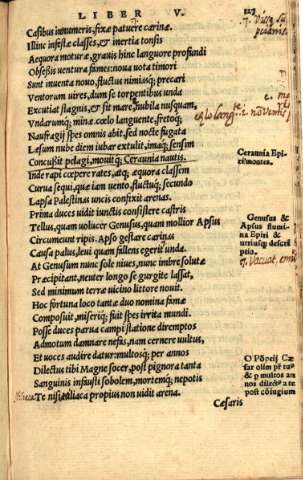 LIBER V. 127
Casibus innumeris, fixæ patuere carinæ.
Illinc infestæ classes, & inertia tonsis
Aequora moturæ, grauis hinc languore profundi
Obsessis uentura fames: noua uota timori
Sunt inuenta nouo, fluctus nimiasq; precari
Ventorum uires, dum se torpentibus unda
Excutiat stagnis, & sit mare, nubila nusquam,
Undarumq; minæ. cœlo languente, fretoq;
Naufragij spes omnis abit. sed nocte fugata
Læsum nube diem iubar extulit, imaq; sensim
Concussit pelagi, mouitq; Ceraunia nautis.
Inde rapi cœpere rates, atq; æquora classem
Curua sequi, quæ iam uento, fluctuq; secundo
Lapsa Palestinas uncis confixit arenas.
Prima duces uidit iunctis consistere castris
Tellus, quam uolucer Genusus, quam mollior Apsus
Circumeunt ripis. Apso gestare carinas
Causa palus, leui quam fallens egerit unda.
At Genusum nunc sole niues, nunc imbre solutæ
Præcipitant, neuter longo se gurgite lassat,
Sed minimum terræ uicino littore nouit.
Hoc fortuna loco tantæ duo nomina famæ
Composuit, miseriq; fuit spes irrita mundi.
Posse duces parua campi statione diremptos
Admotum damnare nefas, nam cernere uultus,
Et uoces audire datur: multosq; per annos
Dilectus tibi Magne socer, post pignora tanta
Sanguinis infausti sobolem, mortemq; nepotis
Te nisi Niliaca propius non uidit arena.
Cæsaris
Ceraunia Epi-
ri montes.
Genusus &
Apsus flumi-
na Epiri &
utriusq; descri
ptio.
O Põpeij Cæ
sar olim pr tuꝰ
& p multos an
nos dilectꝰ a te
post cõiugium